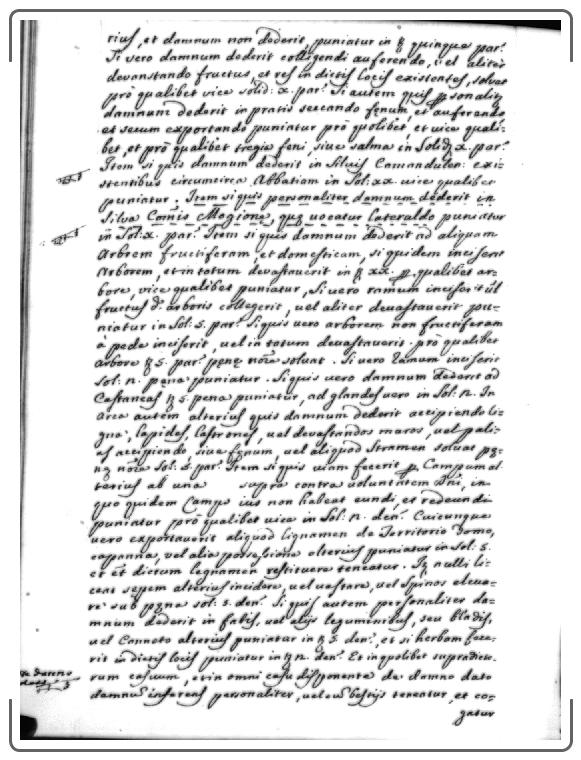 rius, et damnum non dederit, puniatur in ℔ quinque par:
Si vero damnum dederit colligendi auferendo, vel aliter
devastando fructus, et res in dictis locis existentes, solvat
prò qualibet vice solid: x. par: Si autem quis personalit
damnum dederit in pratis secando fęnum, et auferendo
et secum exportando puniatur prò quolibet et vice quali:
bet, et prò qualibet tregia feni, sive salma in Solid x. par:
Item si quis damnum dederit in Silvis Camandulen: exi:
stentibus circumcirca Abbatiam in Sol: xx. vice qualibet
puniatur. Item si quis personaliter damnum dederit in
Silva Comis Mogione, quę vocatur Lateraldo puniatur
in Sol: x. par: Item si quis damnum dederit ad aliquam
Arborem fructiferam, et domesticam, si quidem inciserit
Arborem, et in totum devastaverit in ℔ xx. p qualibet ar:
bore, vice qualibet puniatur, Si vero ramum inciserit
fructus arboris collegerit, vel aliter devastaverit pu:
niatur in Sol: 5. par: Si quis vero arborem non fructiferam
à pede inciserit, vel in totum devastaverit prò qualibet
arbore ℔ 5. par: penę solvat. Si vero ramum inciserit
Sol: n. pęna puniatur. Si quis vero damnum dederit ad
Castaneas ℔ 5. pena puniatur, ad glandes vero in Sol: n. In
Arca autem alterius quis damnum dederit accipiendo li:
gna, lapides, vel devastandos muros, vel pali:
accipiendo, sive fęnum, vel aliquod stramen solvat pę:
Sol: 5. par: Item si quis viam fecerit p Campum al:
terius ab una supra contra voluntatem Dni, in
quo quidem Campo ius non habeat eundi, et redeundi
puniatur prò qualibet vice in Sol: n. den: Cuicunque
vero exportaverit aliquod lignamen de Territorio Domo,
capanna, vel alia possessione alterius puniatur in Sol: 5.
et dictum legnamen restituere teneatur. nulli li:
ceat sepem alterius incidere, vel vastare, vel Spinos eleva:
re sub pęna sol: 5. den: Si quis autem personaliter da:
mnum dederit in fabis, vel alijs leguminibus, seu bladis,
vel Canneto alterius puniatur in ℔ 5. den:, et si herbam fece:
rit in dictis locis puniatur in ℔ n. den: Et in quolibet supradicto:
rum casuum, et in omni casu disponente de damno dato
damnũ inferens personaliter, vel cũ bestijs teneatur, et co:
gatur
de danno